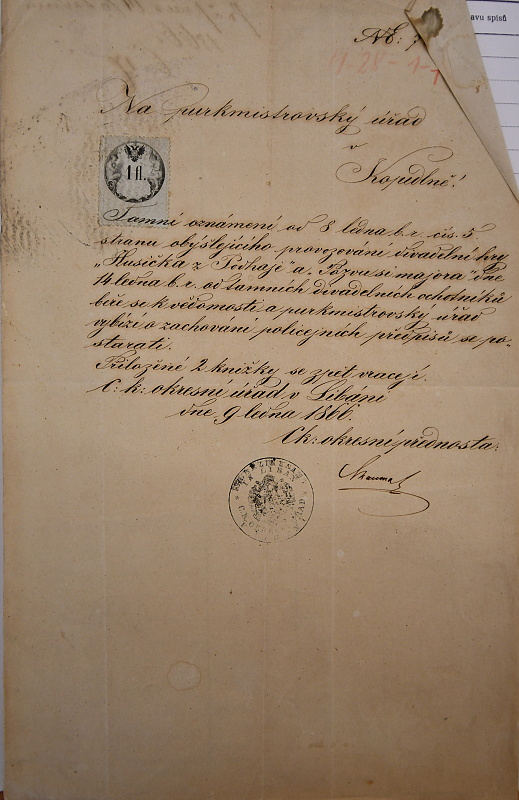 avu spisů
Nô: 7
Na purkmistrovský úřad
v
Kopidlně!
1 fl.
Tamní oznámení od 8 ledna b.r. čís. 5
stranu obyslejícího provozování divadelní hry
„Husička z Podhájí" a „Pozve si majora" dne
14 ledna b.r. od tamních divadelních ochotníků
béře se k vědomosti a purkmistrovský úřad
vybízí o zachování policejních předpisů se po-
starati.
Přiložené 2 knížky se zpět vracejí.
C: k: okresní úřad v Libáni
dne 9 ledna 1866.
Ck: okresní přednosta: